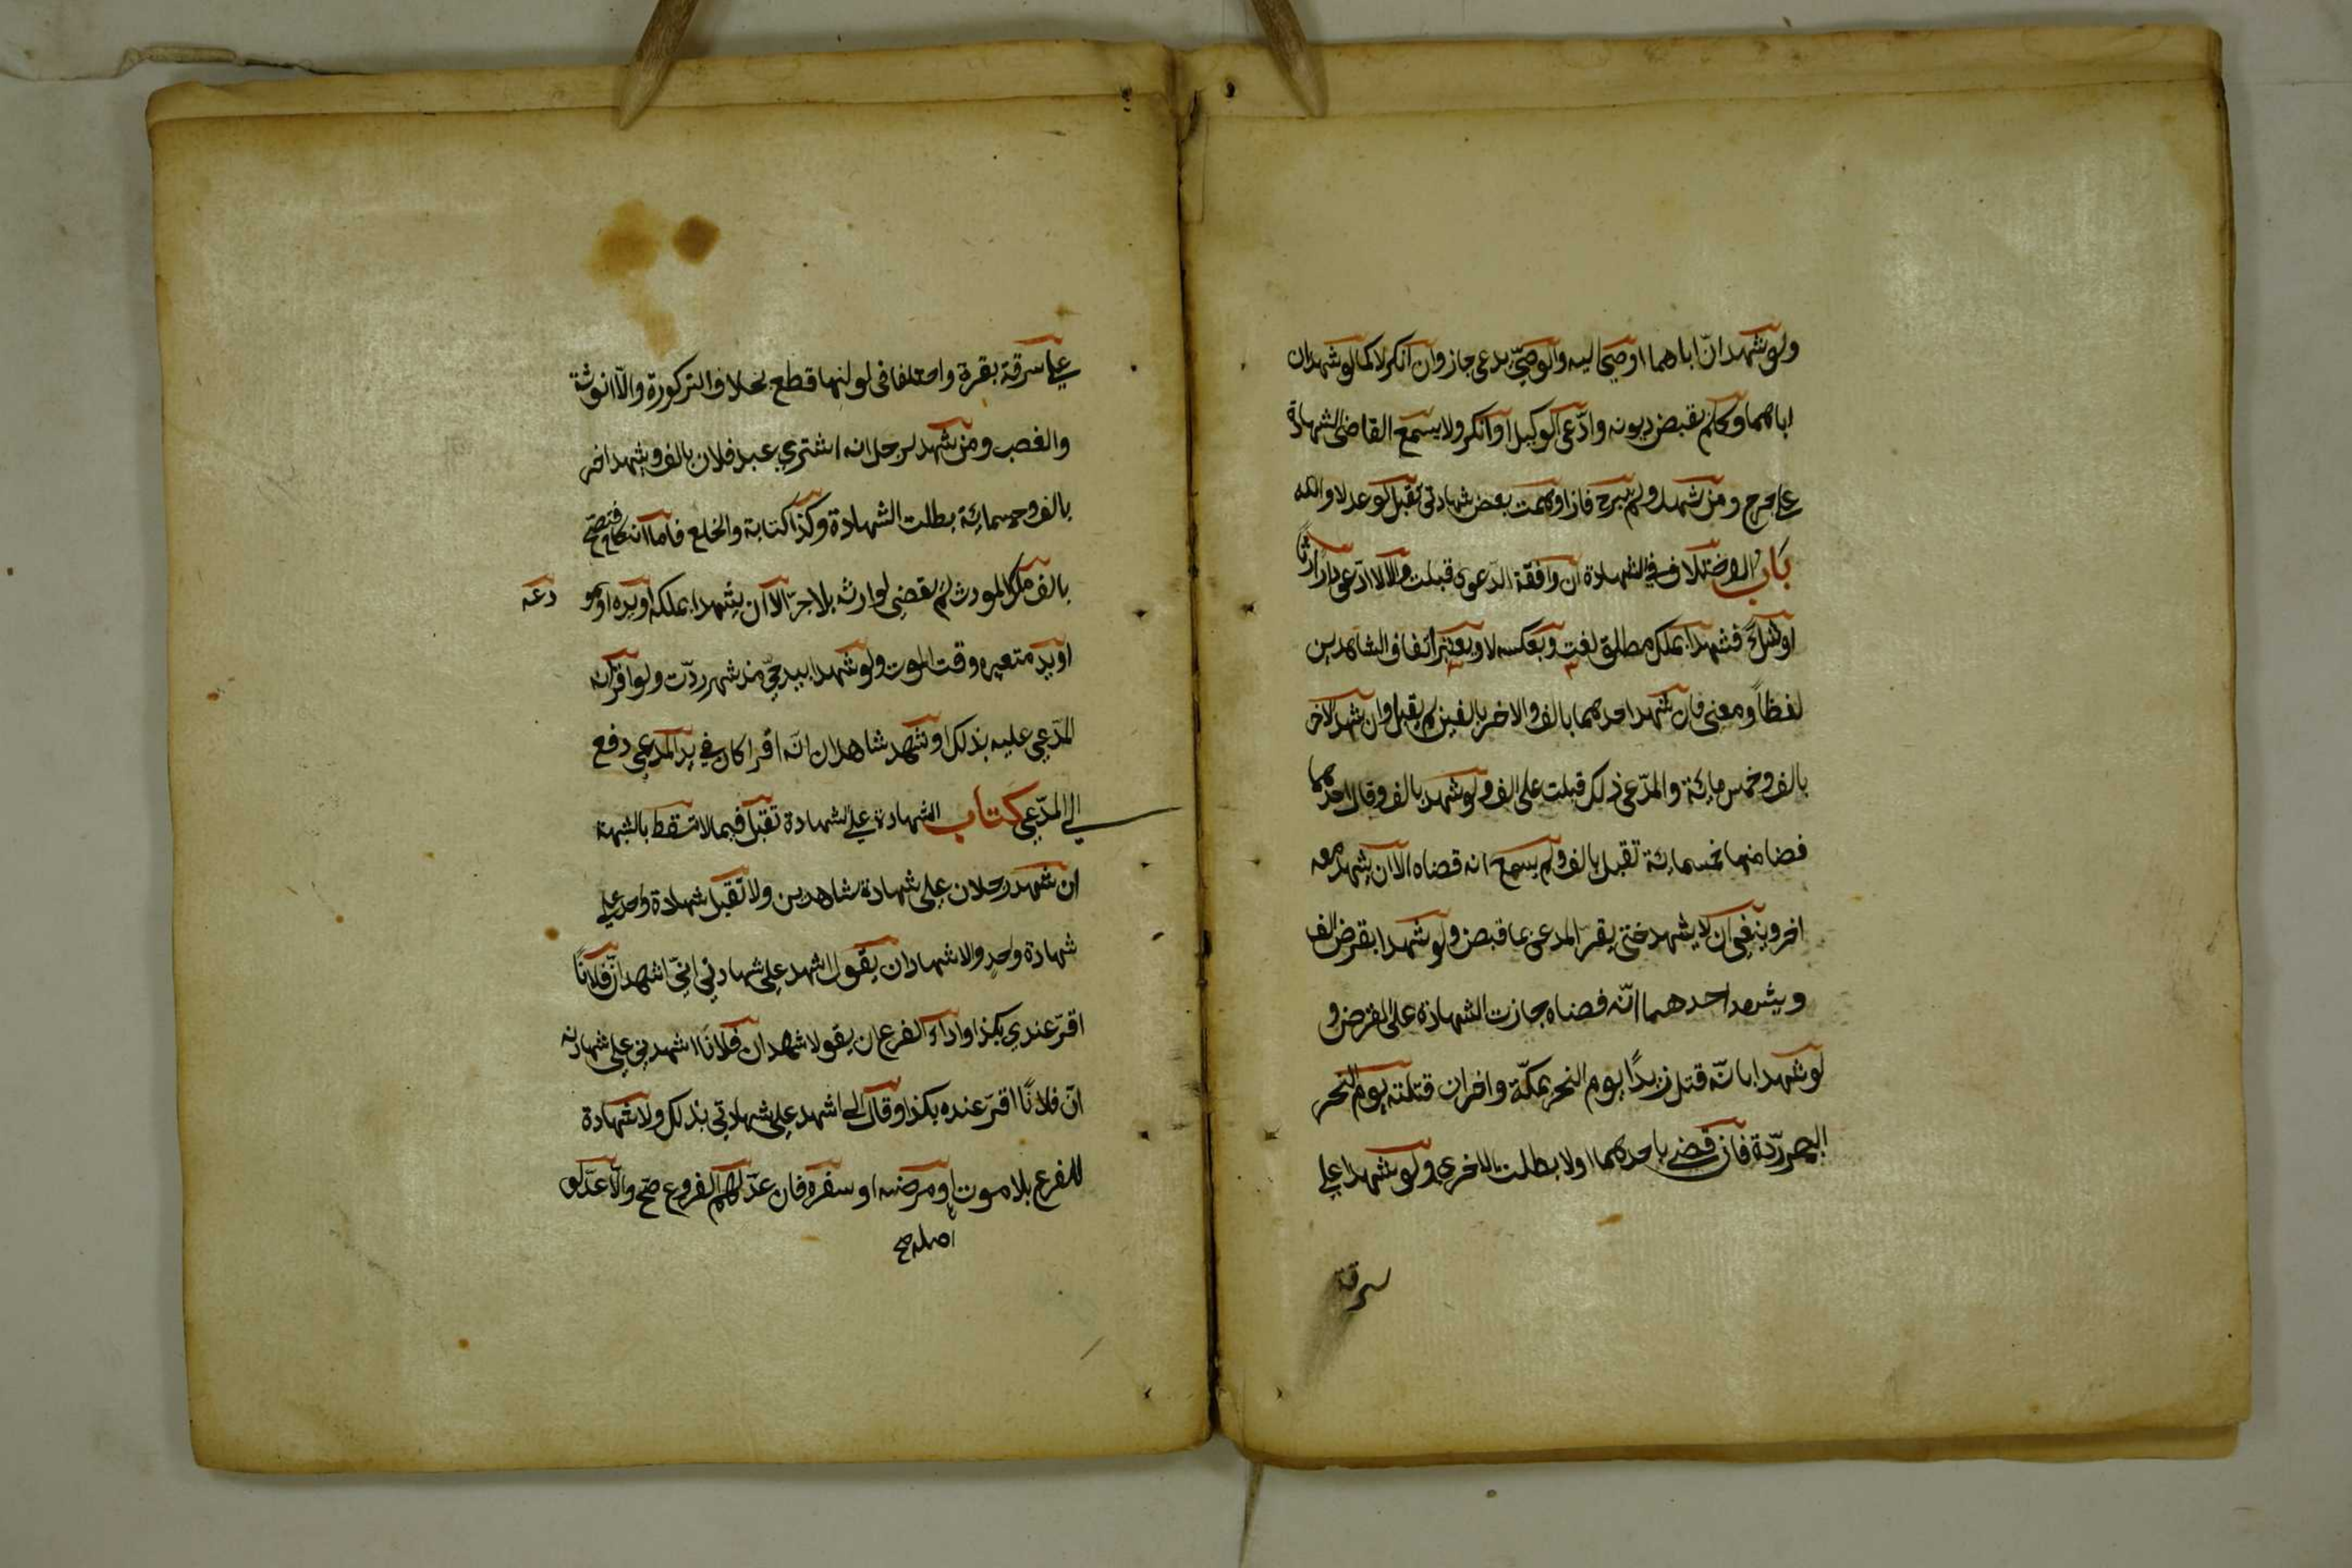 ولو شهد انّ اباهما اوصى اليه والوصيّ يدعى جاز وان انكر لا كما لو شهد ان
اباهما وكله بقبض ديونه وادّعى الوكيل او انكر ولا يسمع القاضى الشهادة
على جرح ومن شهد ولم يبرح فان اوهمت بعض شهادتى تقبل لو عدلا والله
باب الاختلاف في الشهادة ان وافقة الدّعوى قبلت والّا لا ادّعى دارا ارثًا
او شراءً فشهدا بملك مطلق لغت وبعكسه لا ويعتبر اتفاق الشاهدين
لفظاً ومعنى فان شهد احدهما بالف والاخر بالفين لم يقبل وان شهد الاخر
بالف وخمس مائة والمدّعى ذلك قبلت على الف ولو شهد بالف وقال احدهما
قضا منها خمسمائة تقبل بالف ولم يسمع انه قضاه الا ان يشهد معه
اخر وينبغى ان لا يشهد حتى يقرّ المدعى بما قبض ولو شهدا بقرض الف
ويشهد احدهما انّه قضاه جازت الشهادة على القرض و
لو شهدا بانّه قتل زيدًا يوم النحر بمكّة واخران قتلته يوم النحر
بمصر ردّة فان قضى باحدهما اولا بطلت الاخرى ولو شهدا على
سرقة
على سرقة بقرة واختلفا فى لونها قطع بخلاف الذكورة والانوثة
والغصب ومن شهد لرجل انه اشترى عبد فلان بالف وشهد اخر
بالف وخمسمائة بطلت الشهادة وكذا كتابة والخلع فاما النكاح فتصحّ
بالف ملك المورث لم يقضى لوارثه بلا جرّ الا ان يشهدا بملكه او يده او مو دعه
او يد مستعيره وقت الموت ولو شهدا بيد حيّ منذ شهر ردّت ولو اقرّ انه
المدّعى عليه بذلك او شهد شاهدان انّه اقرا كان في يد المدعى دفع
الى المدّعي كتاب الشهادة على الشهادة تقبل فيما لا تسقط بالشبهة
ان شهد رجلان على شهادة شاهدين ولا تقبل شهادة واحد على
شهادة واحد والاشهاد ان يقول اشهد على شهادتي انّي اشهد انّ فلانًا
اقرّ عندي بكذا واداء الفرع ان يقول اشهد ان فلانًا اشهدني على شهادته
انّ فلانًا اقرّ عنده بكذا وقال لي اشهد على شهادتي بذلك ولا شهادة
للفرع بلا موت او مرضه او سفره فان عدّ لهم الفروع صحّ والّا عدّلو
اصله صح